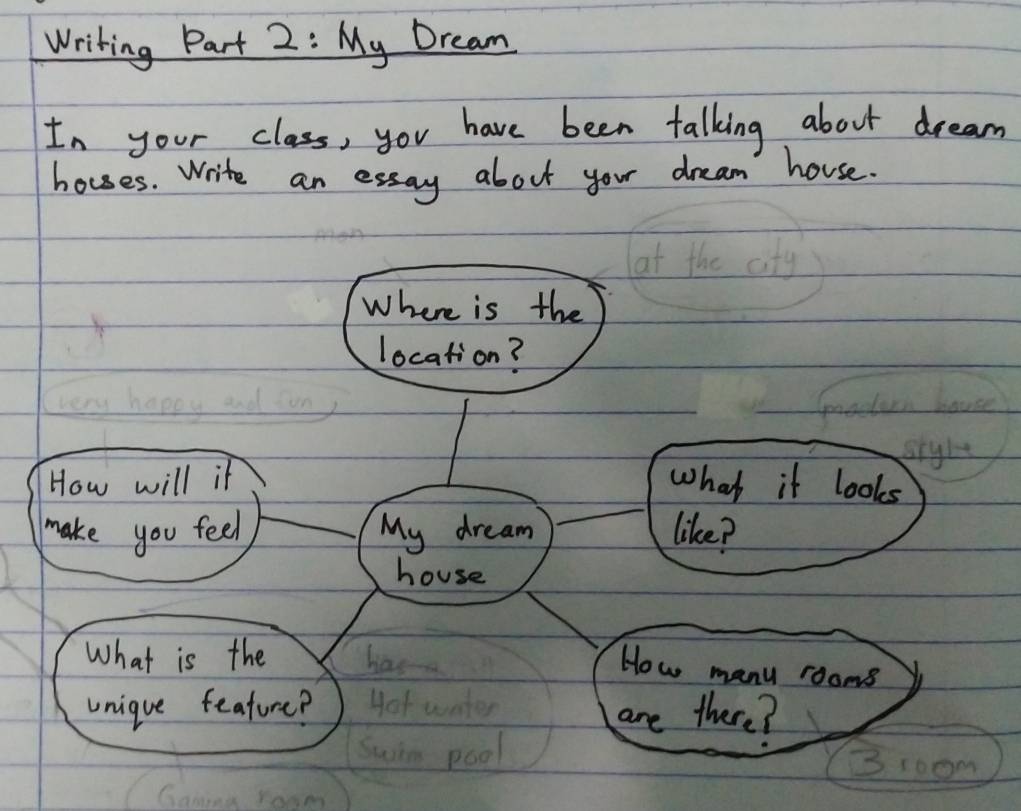 Writing Part 2: My Dream
In your class, you have been talking about dream
houses. Write an essay about your dream house.
at the city
Where is the
location?
very happy and fun
modern house
style
How will it
make you feel
What it looks
like?
My dream
house
What is the
unique feature?
has
Hot water
Swim pool
How many rooms
are there?
3 room
Gaming room